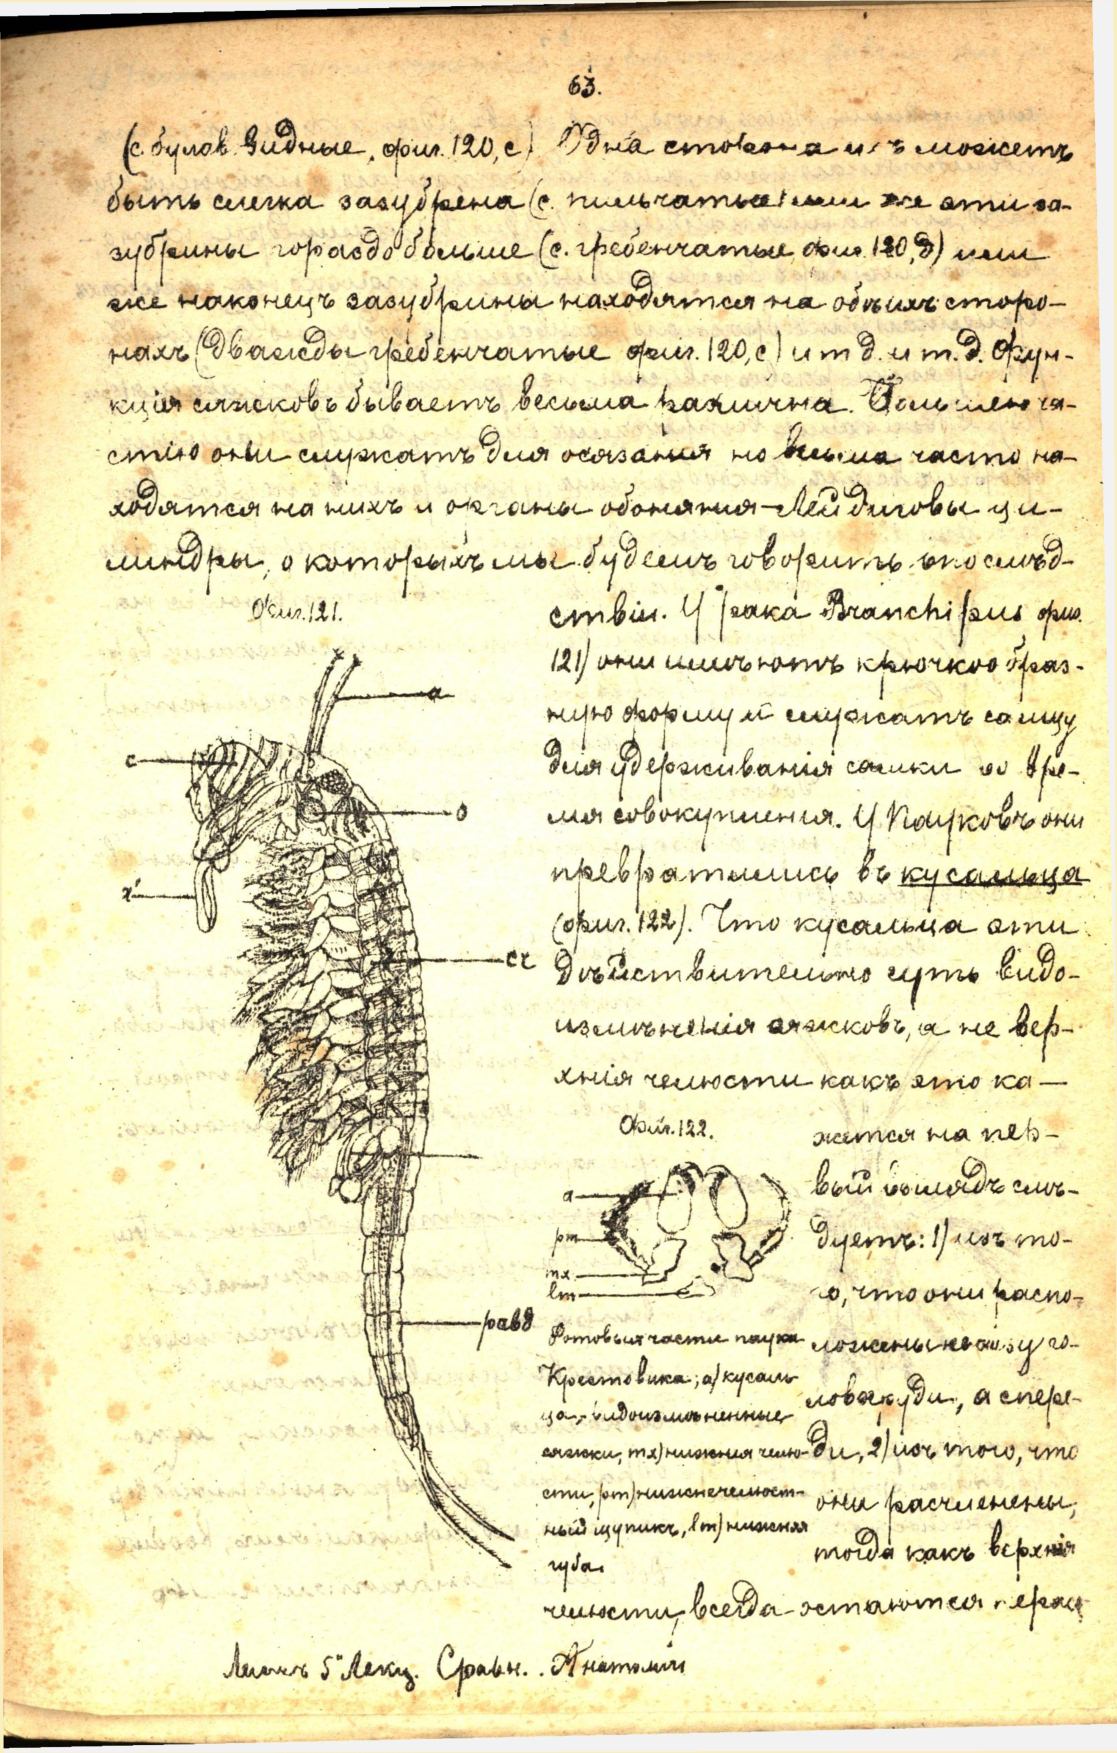 63.
(с. булав видные, фиг. 120, с) Одна сторона ихъ можетъ
быть слегка зазубрена (с. пильчатые) или же эти за-
зубрины гораздо больше (с. гребенчатые фиг. 120, д) или
же наконецъ зазубрины находятся на обѣихъ сторо-
нахъ (дважды гребенчатые фиг. 120, с) и т д. и т. д. Фун-
кція сяжковъ бываетъ весьма различна. Большею ча-
стію они служатъ для осязанія но весьма часто на-
ходятся на нихъ и органы обонянія – Лейдиговы ци-
линдры, о которыхъ мы будемъ говорить впослѣд-
ствіи. У рака Branchipus фиг.
121) они имѣютъ крючкообраз-
ную форму и служатъ самцу
для удерживанія самки во вре-
мя совокупленія. У Пауковъ они
превратились въ кусальца
(фиг. 122). Что кусальца эти
дѣйствительно суть видо-
измѣненія сяжковъ, а не вер-
хнія челюсти какъ это ка-
жется на пер-
вый взглядъ слѣ-
дуетъ: 1) изъ то-
го, что они распо-
ложены не сзу го-
ловогруди, а спере-
ди, 2) изъ того, что
они расчленены,
тогда какъ верхнія
челюсти, всегда остаются
Фиг. 121.
a
c
o
x'
cr
равд
Фиг. 122.
a
pm
mx
lm
Ротовыя части паука
Крестовика; а) кусаль-
ца, – видоизмѣненные
сяжки, mx) нижнія челю-
сти, pm) нижнечелюст-
ный щупикъ, lm) нижняя
губа.
Листъ 5й Лекц. Сравн. Анатоміи